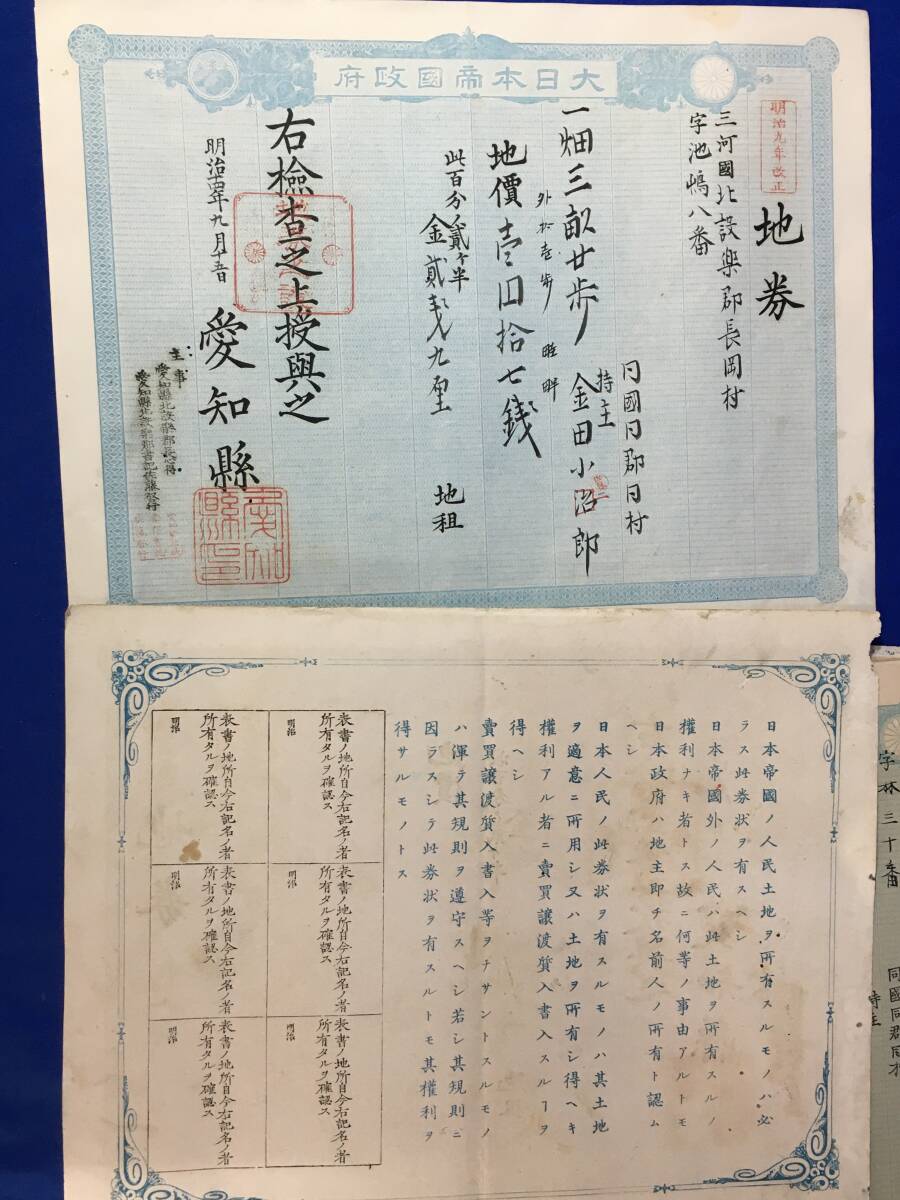 大日本帝國政府
明治九年改正
地券
三河國北設楽郡長岡村
字池嶋八番
一畑三畝廿歩
外拾壱歩 畦畔
同國同郡同村
持主 金田小治郎
地價壱円拾七銭
此百分ノ貳ケ半
金貳銭九厘 地租
右檢査之上授與之
明治十四年九月十五日
愛知縣
主事
愛知縣北設楽郡長心得
愛知縣北設楽郡書記佐藤
愛知縣印
日本帝國ノ人民土地ヲ所有スルモノハ必
ラス此券状ヲ有スヘシ
日本帝國外ノ人民ハ此土地ヲ所有スルノ
權利ナキ者トス故ニ何等ノ事由アルトモ
日本政府ハ地主即チ名前人ノ所有ト認ム
ヘシ
日本人民ノ此券状ヲ有スルモノハ其土地
ヲ適意ニ所用シ又ハ土地ヲ所有シ得ヘキ
權利アル者ニ賣買譲渡質入書入スルヿヲ
得ヘシ
賣買譲渡質入書入等ヲナサントスルモノ
ハ渾テ其規則ヲ遵守スヘシ若シ其規則ニ
因ラスシテ此券状ヲ有スルトモ其權利ヲ
得サルモノトス
表書ノ地所自今右記名ノ者
所有タルヲ確認ス
明治
表書ノ地所自今右記名ノ者
所有タルヲ確認ス
明治
表書ノ地所自今右記名ノ者
所有タルヲ確認ス
明治
表書ノ地所自今右記名ノ者
所有タルヲ確認ス
明治
表書ノ地所自今右記名ノ者
所有タルヲ確認ス
明治
表書ノ地所自今右記名ノ者
所有タルヲ確認ス
明治
字林三十番
同國同郡同村
持主